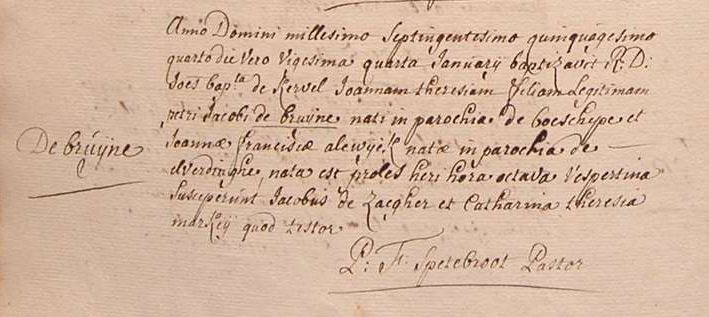 Anno Domini millesimo Septingentesimo quinquagesimo
quarto die Vero Vigesima quarta Januarij baptizavit R: D:
Joes bap:ta de Kervel Joannam theresiam filiam Legitimam
petri Jacobi de bruijne nati in parochia de boeschepe et
De brúijne
Joannæ franciscæ natæ in parochia de
elverdinghe, nata est proles heri hora octava Vespertina
Susceperunt Jacobus de Zaegher et Catharina theresia
quod testor
P: F: Spetebroot Pastor